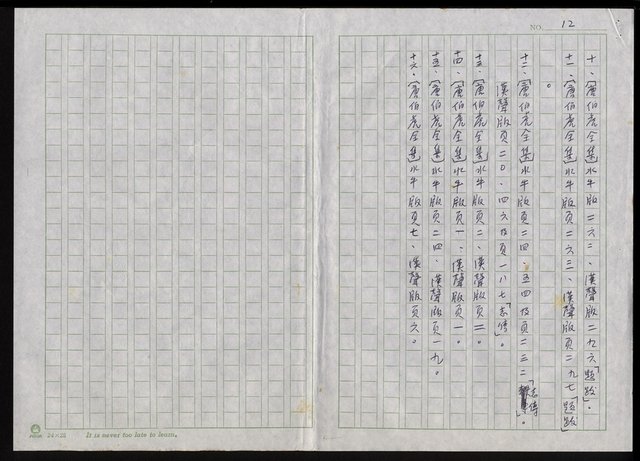 NO. 12
十、〔唐伯虎全集〕水牛版二六二、漢聲版二九六「題跋」。
十一、〔唐伯虎全集〕水牛版頁二六三、漢聲版頁二九七「題跋」
。
十二、〔唐伯虎全集〕水牛版頁二四、五四及頁二三二「志傳」。
漢聲版頁二〇、四六及頁一八七「志傳」。
十三、〔唐伯虎全集〕水牛版頁二、漢聲版頁二。
十四、〔唐伯虎全集〕水牛版頁一、漢聲版頁一。
十五、〔唐伯虎全集〕水牛版頁二四、漢聲版頁一九。
十六、〔唐伯虎全集〕水牛版頁七、漢聲版頁六。
24×25 It is never too late to learn.